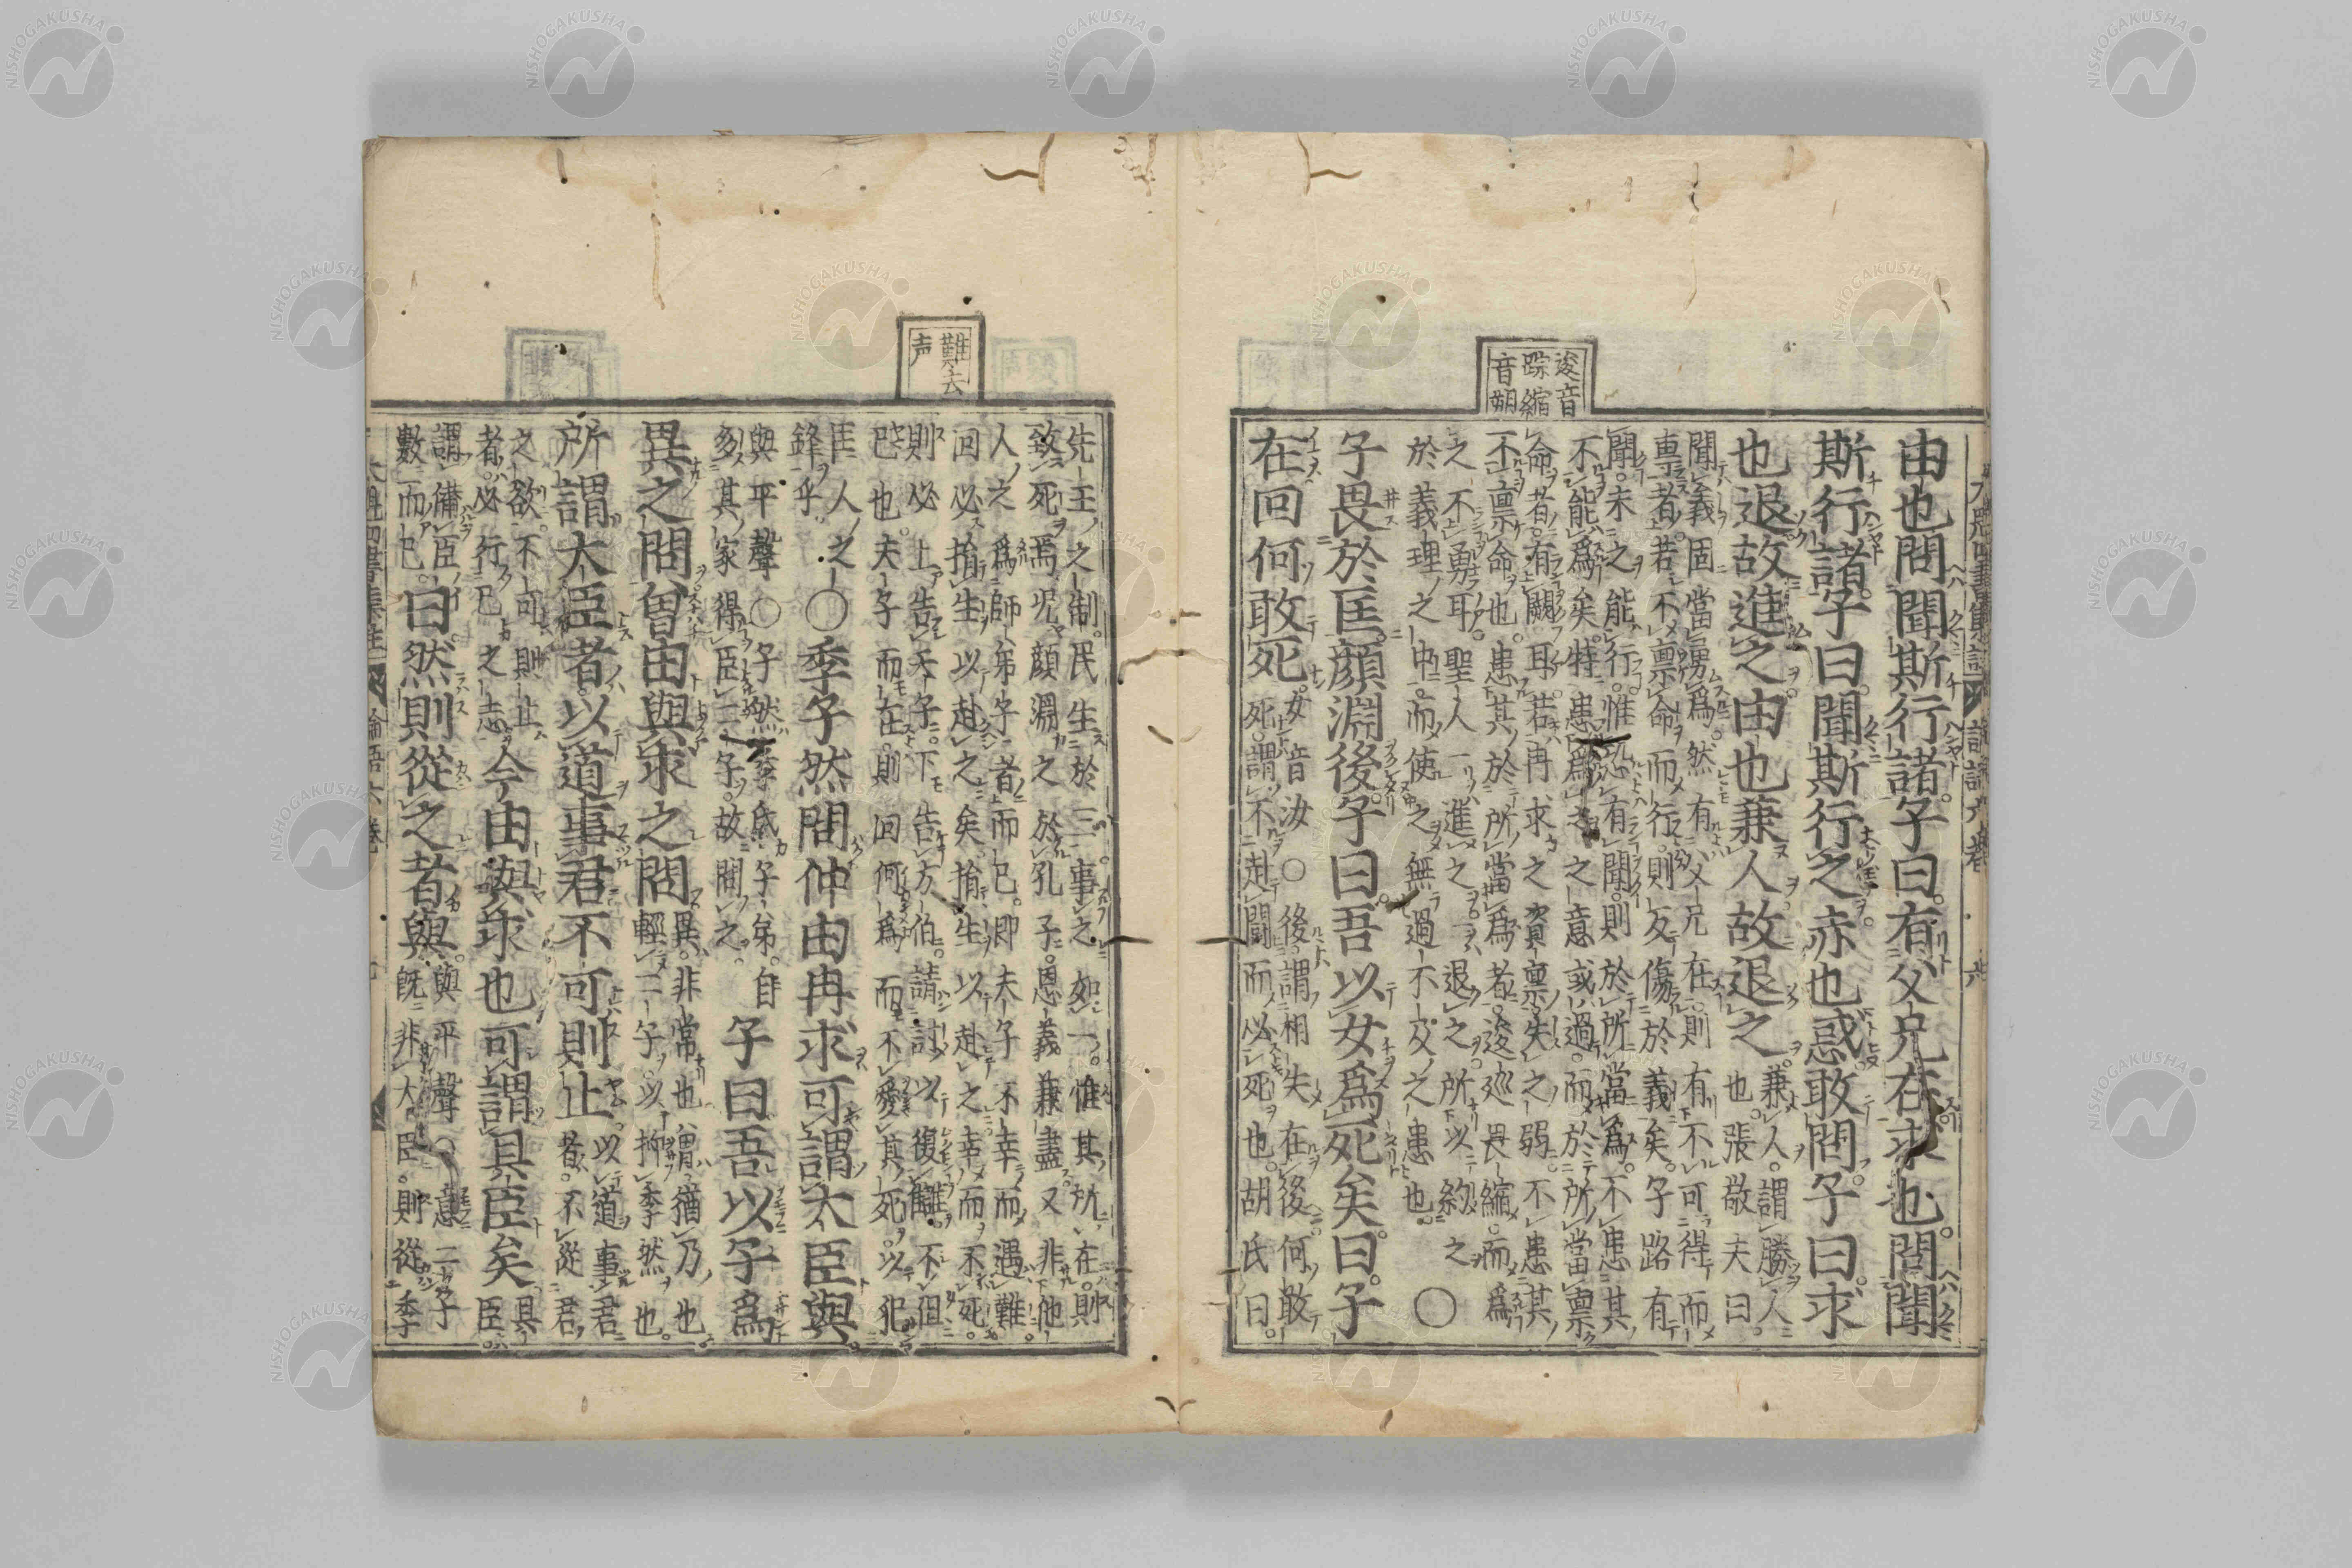 逡音
踪縮
音朔
由也問聞斯行諸。子曰。有父兄在求也。問聞
斯行諸。子曰。聞斯行之。赤也惑。敢問。子曰。求
也退。故進之。由也兼人故退之。
兼人。謂勝人
也。張敬夫曰。
聞義固當勇爲。然有父兄在。則有不可得而
專者。若不稟命而行。則反傷於義矣。子路有
聞。未之能行。惟恐有聞。則於所當爲。不患其
不能爲矣。特患爲之之意或過。而於所當稟
命者。有闕耳。若冉求之資稟失之弱。不患其
不稟命也。患其於所當爲者。逡巡畏縮。而爲
之不勇耳。聖人一進之。一退之。所以約之
於義理之中。而使之無過不及之患也。
○
子畏於匡。顏淵後。子曰。吾以女爲死矣。曰。子
在回何敢死。
女音汝○後。謂相失在後。何敢
死。謂不赴鬪而必死也。胡氏曰。
難去
声
先王之制。民生於三。事之如一。惟其所在。則
致死焉。况顔淵之於孔子。恩義兼盡。又非他
人之爲師弟子者而已。即夫子不幸而遇難。
回必捐生以赴之矣。捐生以赴之。幸而不死。
則必上告天子。下告方伯。請討以復讎。不但
已也。夫子而在。則回何爲而不愛其死。以犯
匡人之
鋒乎。
○季子然問仲由冉求可謂大臣與。
與平聲○子然季氏子弟。自
多其家得臣二子。故問之。
子曰吾以子爲
異之問。曾由與求之問
異。非常也。謂猶乃也。
輕二子。以抑季然也。
所謂大臣者。以道事君不可則止
以道事君
者。不從君
之欲。不可則止
者。必行己之志
今由與求也可謂具臣矣
具
臣。
謂備臣
數而已。
曰。然則從之者與。
與平聲○意二子
既非大臣。則從季